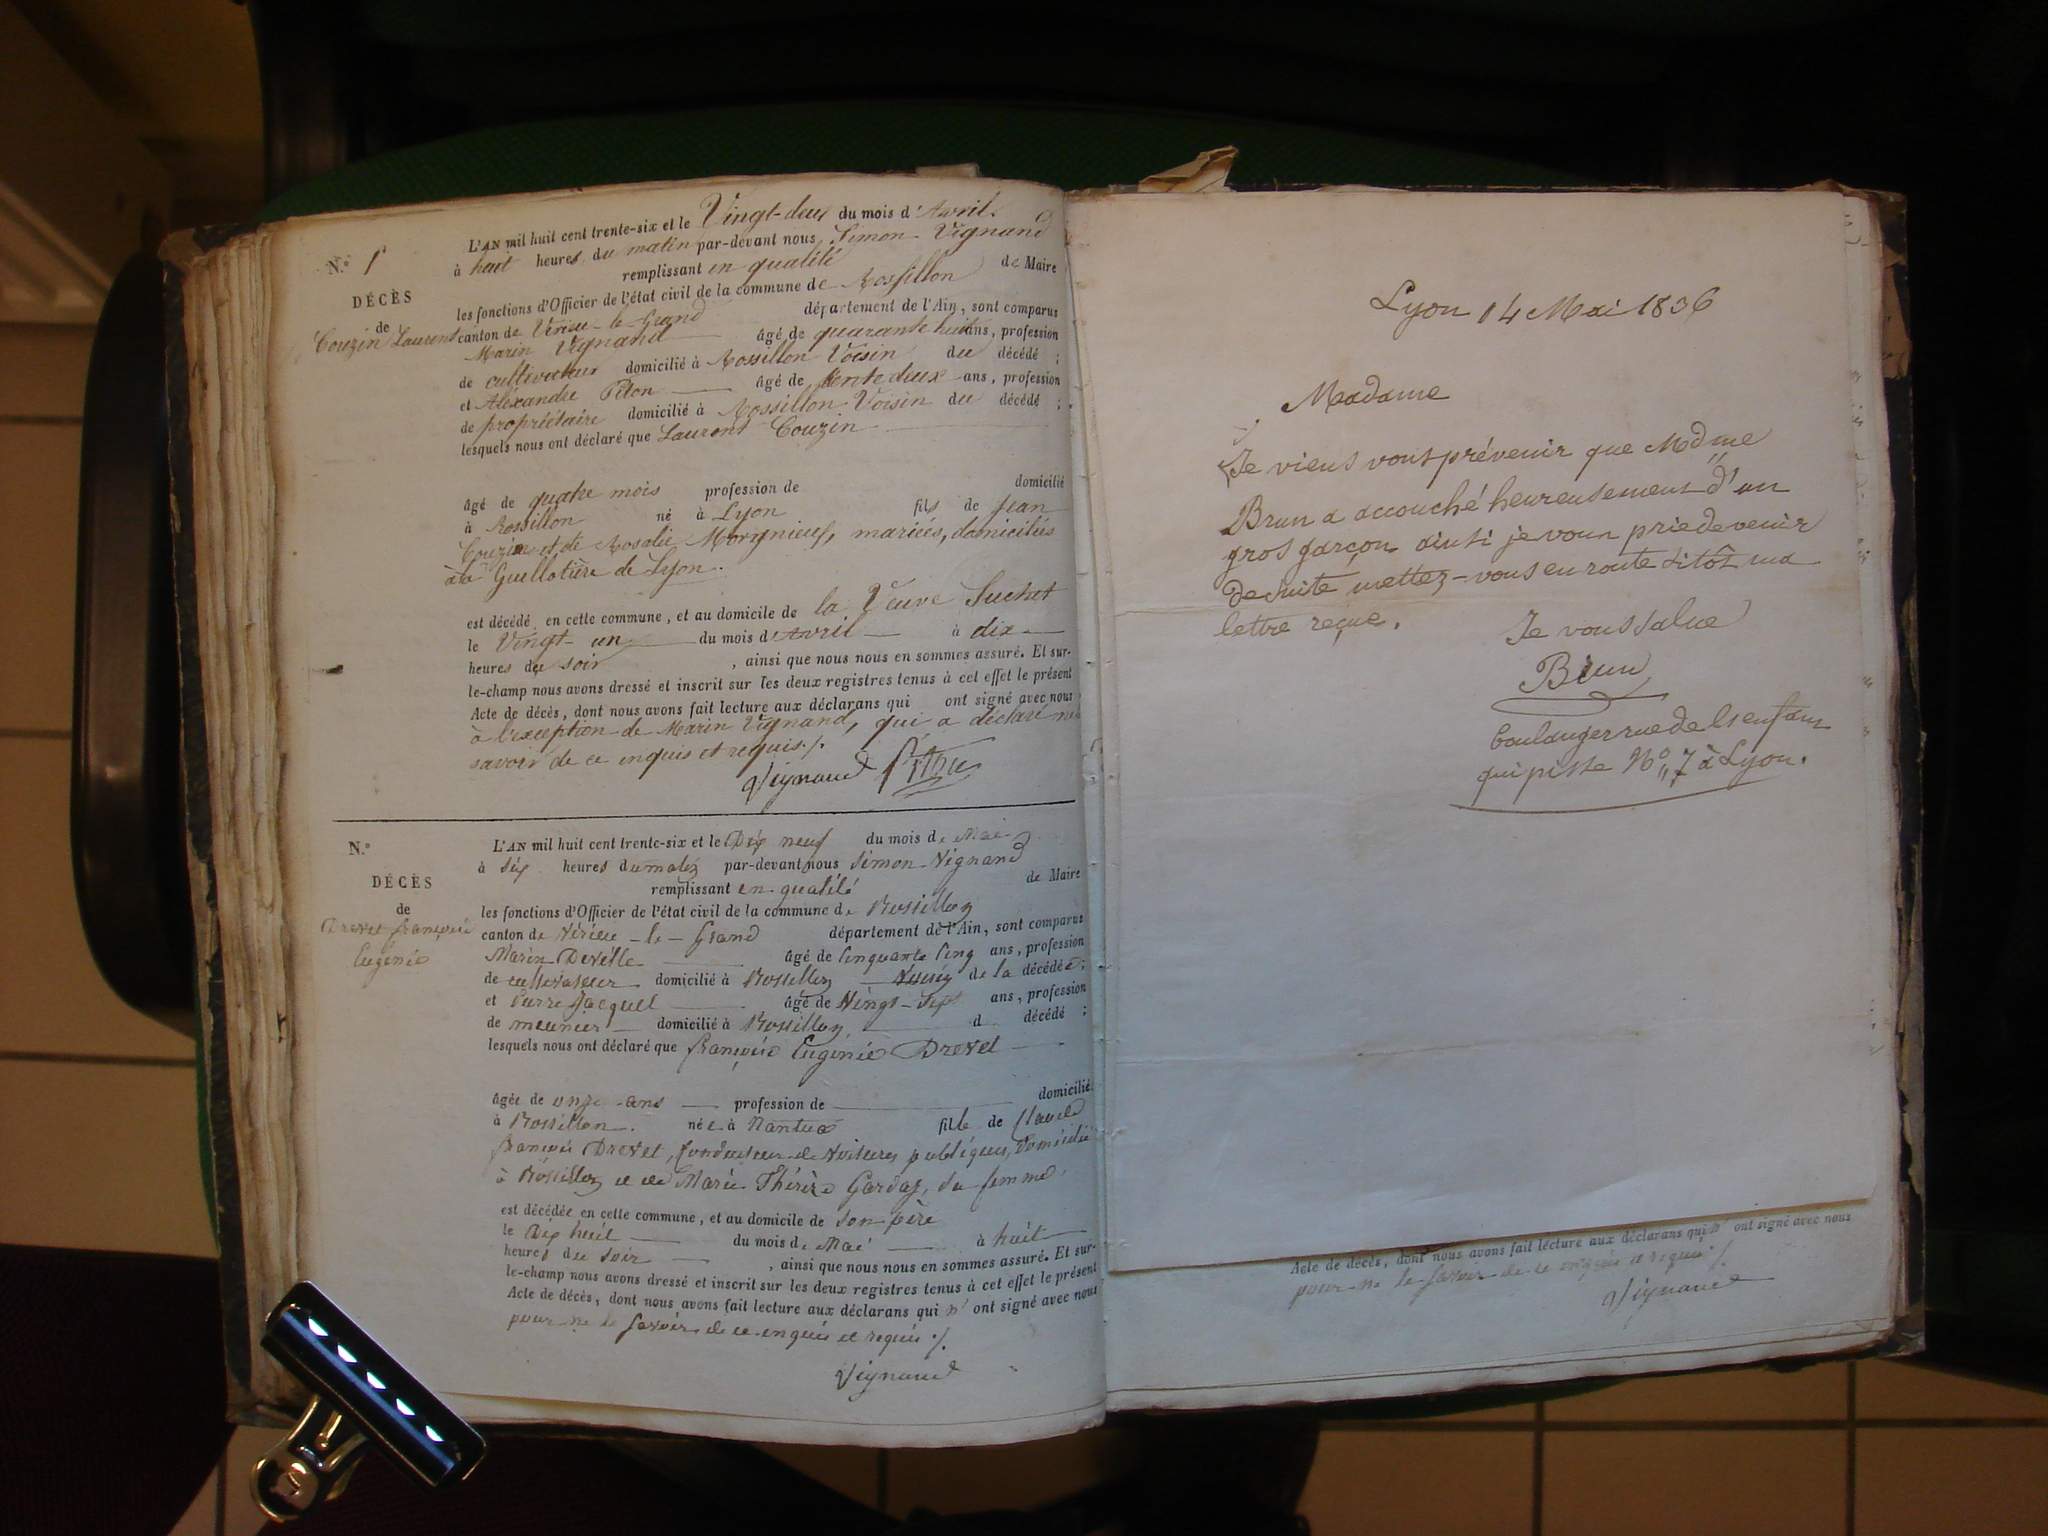 N.º 1
DÉCÈS
de
Couzin Laurent
L'AN mil huit cent trente-six et le Vingt-deux du mois d'Avril
à huit heures du matin par-devant nous Simon Vignand
remplissant en qualité de Maire
les fonctions d'Officier de l'état civil de la commune de Rossillon
canton de Virieu-le-Grand département de l'Ain, sont comparus
Marin Vignand âgé de quarante huit ans, profession
de cultivateur domicilié à Rossillon Voisin du décédé ;
et Alexandre Piton âgé de trente deux ans, profession
de propriétaire domicilié à Rossillon Voisin du décédé ;
lesquels nous ont déclaré que Laurent Couzin
âgé de quatre mois profession de domicilié
à Rossillon né à Lyon fils de Jean
Couzin et de Rosalie Morgnieux, mariés, domiciliés
à la Guillotière de Lyon.
est décédé en cette commune, et au domicile de la Veuve Suchet
le Vingt-un du mois d'Avril à dix
heures du soir, ainsi que nous nous en sommes assuré. Et sur-
le-champ nous avons dressé et inscrit sur les deux registres tenus à cet effet le présent
Acte de décès, dont nous avons fait lecture aux déclarans qui ont signé avec nous
à l'exception de Marin Vignand, qui a déclaré ne
savoir de ce enquis et requis./.
Vignand
N.º
DÉCÈS
de
Drevet françoise
Eugénie
L'AN mil huit cent trente-six et le Dix neuf du mois de Mai
à six heures du matin par-devant nous Simon Vignand
remplissant en qualité de Maire
les fonctions d'Officier de l'état civil de la commune de Rossillon
canton de Virieu-le-Grand département de l'Ain, sont comparus
Marin Deville âgé de Cinquante Cinq ans, profession
de cultivateur domicilié à Rossillon Voisin de la décédée ;
et Pierre Jacquet âgé de Vingt-sept ans, profession
de meunier domicilié à Rossillon d décédé ;
lesquels nous ont déclaré que françoise Eugénie Drevet
âgée de onze ans profession de domicilié
à Rossillon. née à Nantua fille de Claude
françois Drevet, Conducteur de Voitures publiques, Domicilié
à Rossillon et de Marie Thérèse Gardaz, sa femme
est décédée en cette commune, et au domicile de son père
le Dix huit du mois de Mai à huit
heures du soir, ainsi que nous nous en sommes assuré. Et sur-
le-champ nous avons dressé et inscrit sur les deux registres tenus à cet effet le présent
Acte de décès, dont nous avons fait lecture aux déclarans qui n'ont signé avec nous
pour ne le savoir de ce enquis et requis./.
Vignand
Lyon 14 Mai 1836
Madame
Je viens vous prévenir que Mdme
Brun a accouché heureusement d'un
gros garçon ainsi je vous prie de venir
de suite mettez-vous en route sitôt ma
lettre reçue.
Je vous salue
Brun
boulanger rue de l'enfant
qui pisse No 7 à Lyon.
Acte de décès, dont nous avons fait lecture aux déclarans qui n'ont signé avec nous
pour ne le savoir de ce enquis et requis./.
Vignand